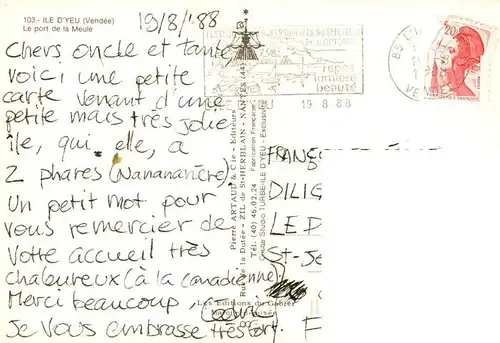 103.- ILE D'YEU (Vendée)
Le port de la Meule
19/8/'88
Chers oncle et tante
voici une petite
carte venant d'une
petite mais très jolie
île, qui, elle, a
2 phares (Nanananère).
Un petit mot pour
vous remercier de
votre accueil très
chaleureux (à la canadienne)
Merci beaucoup,
Je vous embrasse très fort.
Pierre ARTAUD & Cie - Editeurs
Rue de la Dutée - ZIL de St-HERBLAIN - NANTES (44)
Tél. (40) 46.02.24 Fabrication Française
Studio TURBE-ILE D'YEU - Exclusivité
Les Editions du Gabier
repos
lumière
beauté
19 8 88
85 L'I
VENDEE
2,20
FRANÇ
DILIG
LE D
St-Je
F